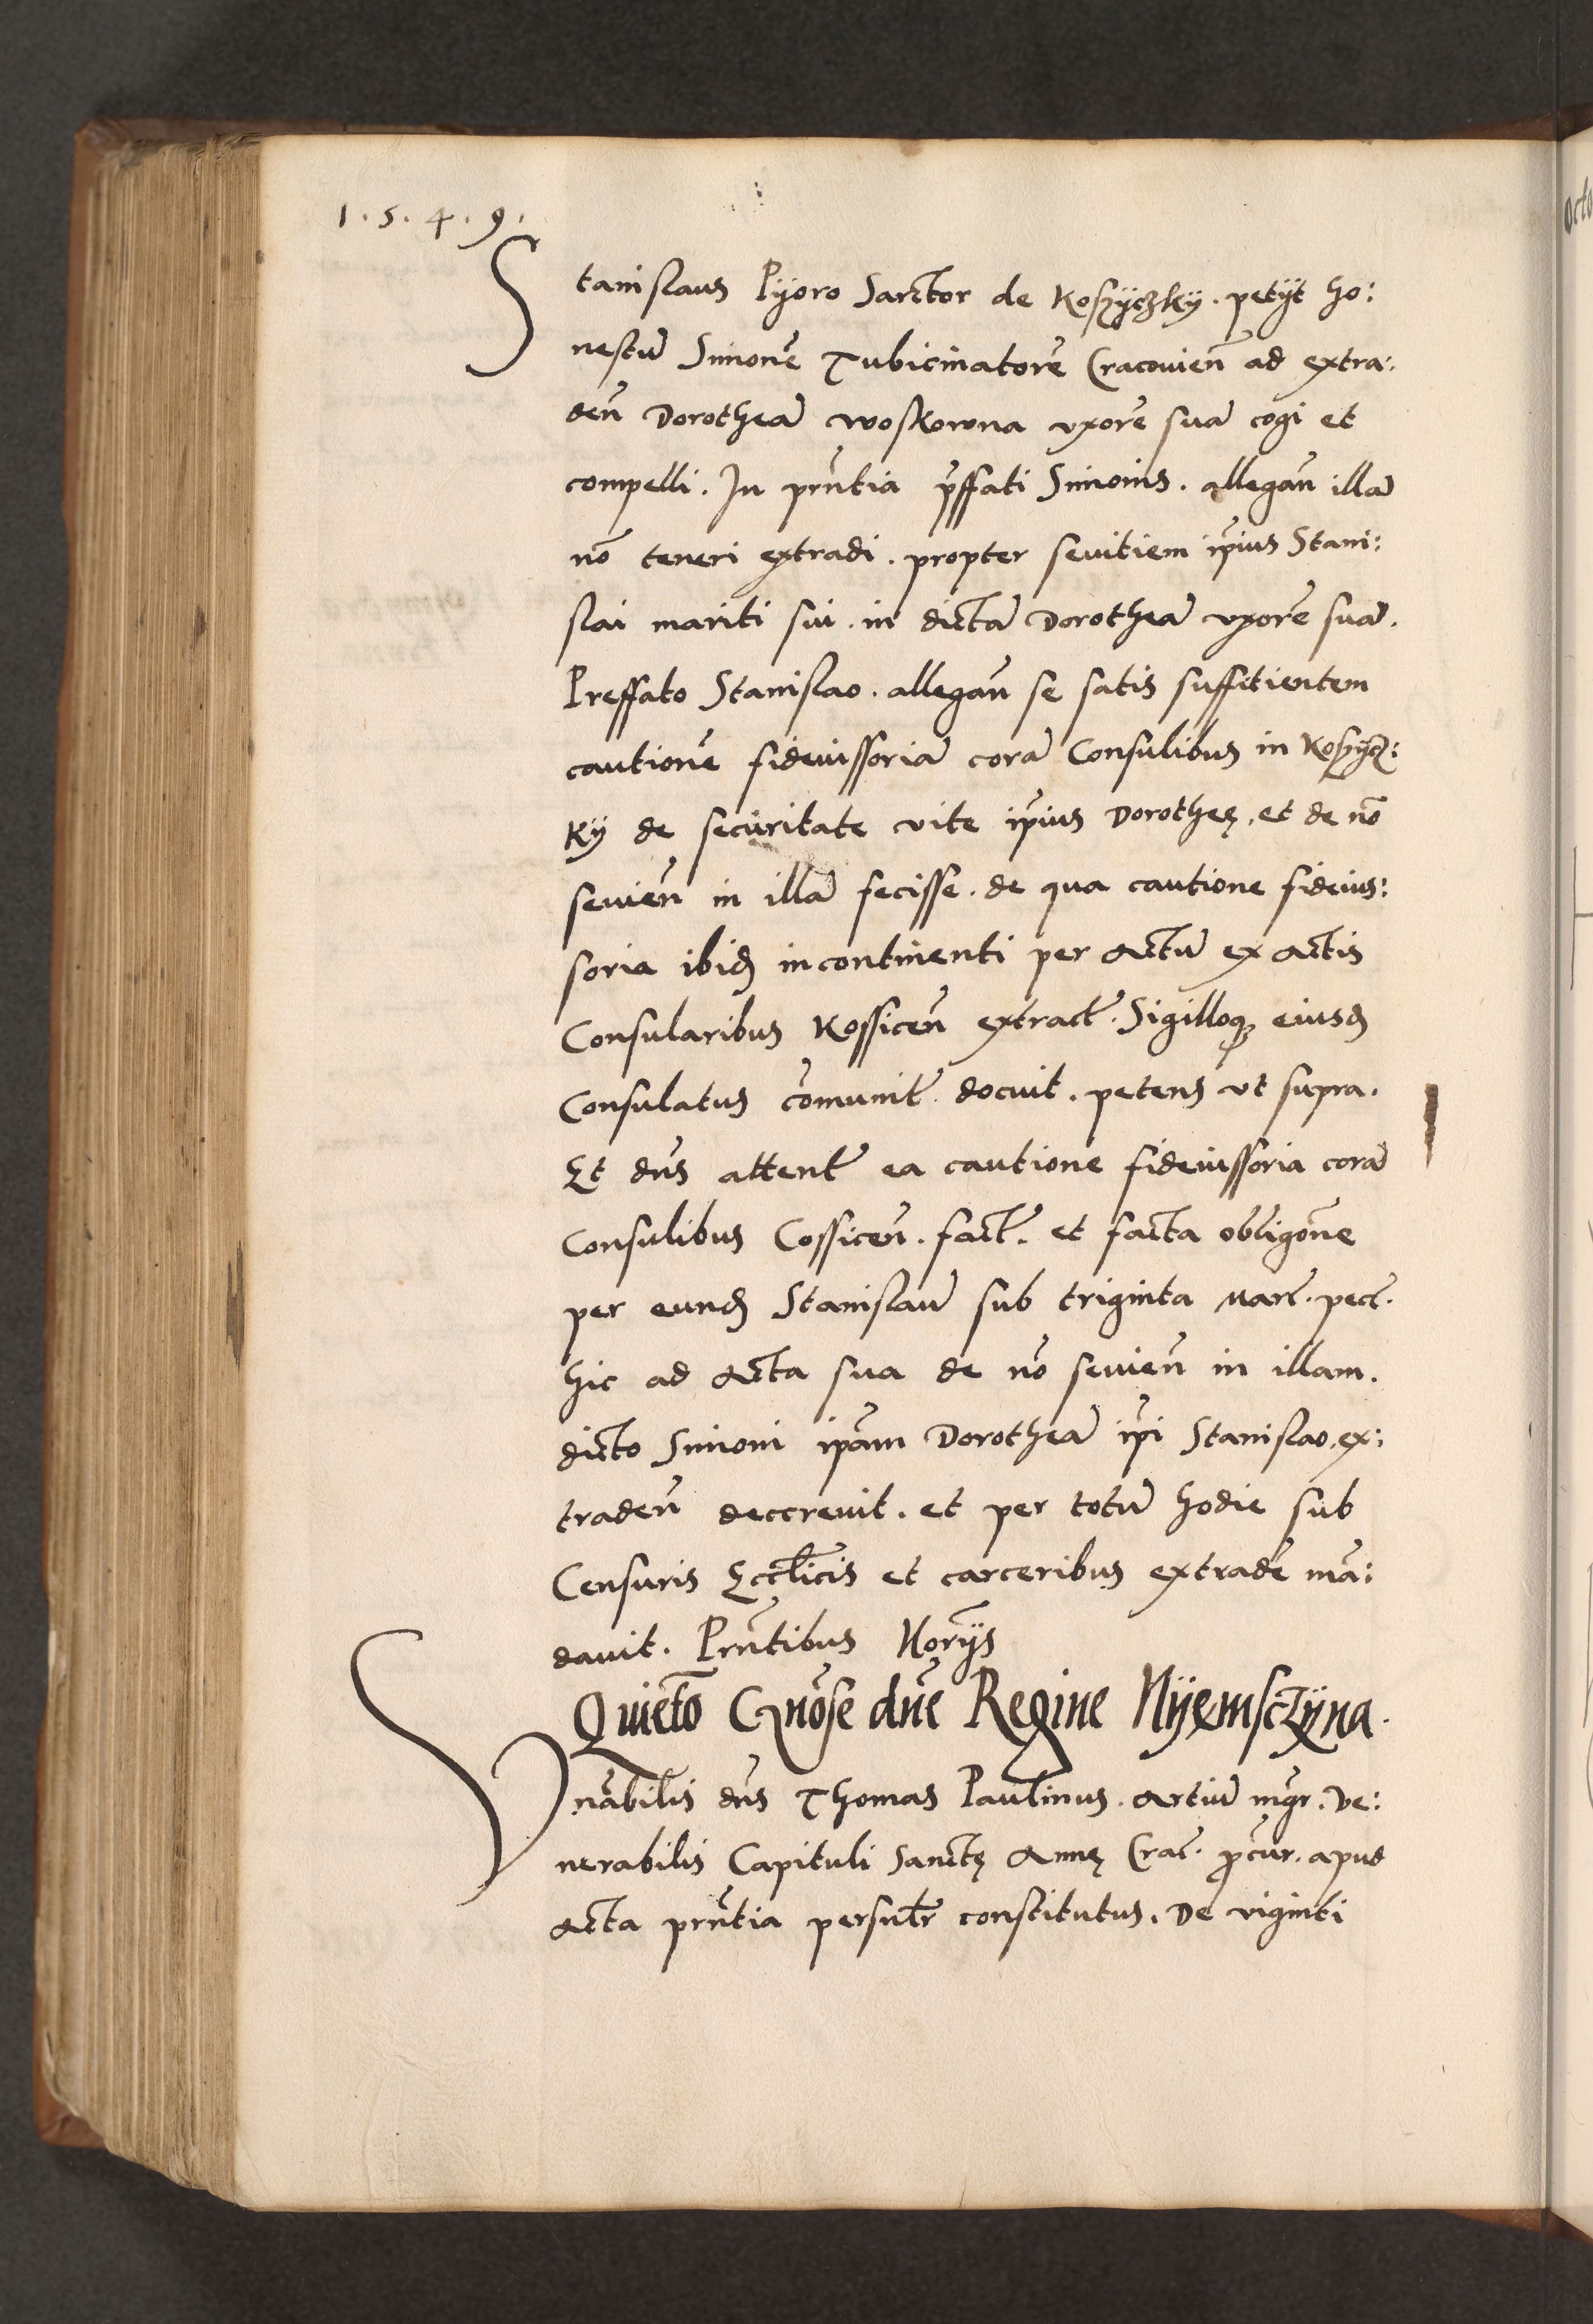 1.5.4.9.
Stanislaus Pyoro Sarctor de Koszyczky. petyt ho:
nestu̅ Simone̅ Tubicinatore̅ Cracouien̅ ad extra:
den̅ Dorothea̅ woskowna vxore̅ sua̅ cogi et
compelli. In prn̅tia p̅ffati Simonis. allegan̅ illa̅
no̅ teneri extradi. propter seuitiem ip̅ius Stani:
slai mariti sui. in dicta̅ Dorothea̅ vxore̅ sua̅.
Preffato Stanislao. allegan̅ se satis suffitientem
cautione̅ fideiussoria̅ cora̅ Consulibus in Koszycz:
ky de securitate vite ip̅ius Dorotheę. et de no̅
seuien̅ in illa̅ fecisse. de qua cautione fideius:
soria ibid incontinenti per actu̅ ex actis
Consularibus Kossicen̅ extract̅. Sigilloq eiusd
Consulatus co̅munit̅. docuit. petens vt supra.
Et dn̅s attent̅ ea cautione fideiussoria cora̅
Consulibus Cossicen̅. fact̅. et facta obligon̅e
per eund Stanislau̅ sub triginta marc̅. pec̅.
hic ad acta sua de no̅ seuien̅ in illam.
dicto Simoni ip̅am Dorothea̅ ip̅i Stanislao. ex:
traden̅ deccreuit. et per totu̅ hodie sub
Censuris Eccl̅icis et carceribus extrade̅ ma̅:
dauit. Prn̅tibus Nor̅ys
Quieto̅ Gno̅se dn̅e Regine Nyemsczyna.
Vna̅bilis dn̅s Thomas Paulinus. artiu̅ mg̅r. ve:
nerabilis Capituli Sanctę Annę Crac̅. pcur̅. apud
acta prn̅tia persnl̅r constitutus. De viginti